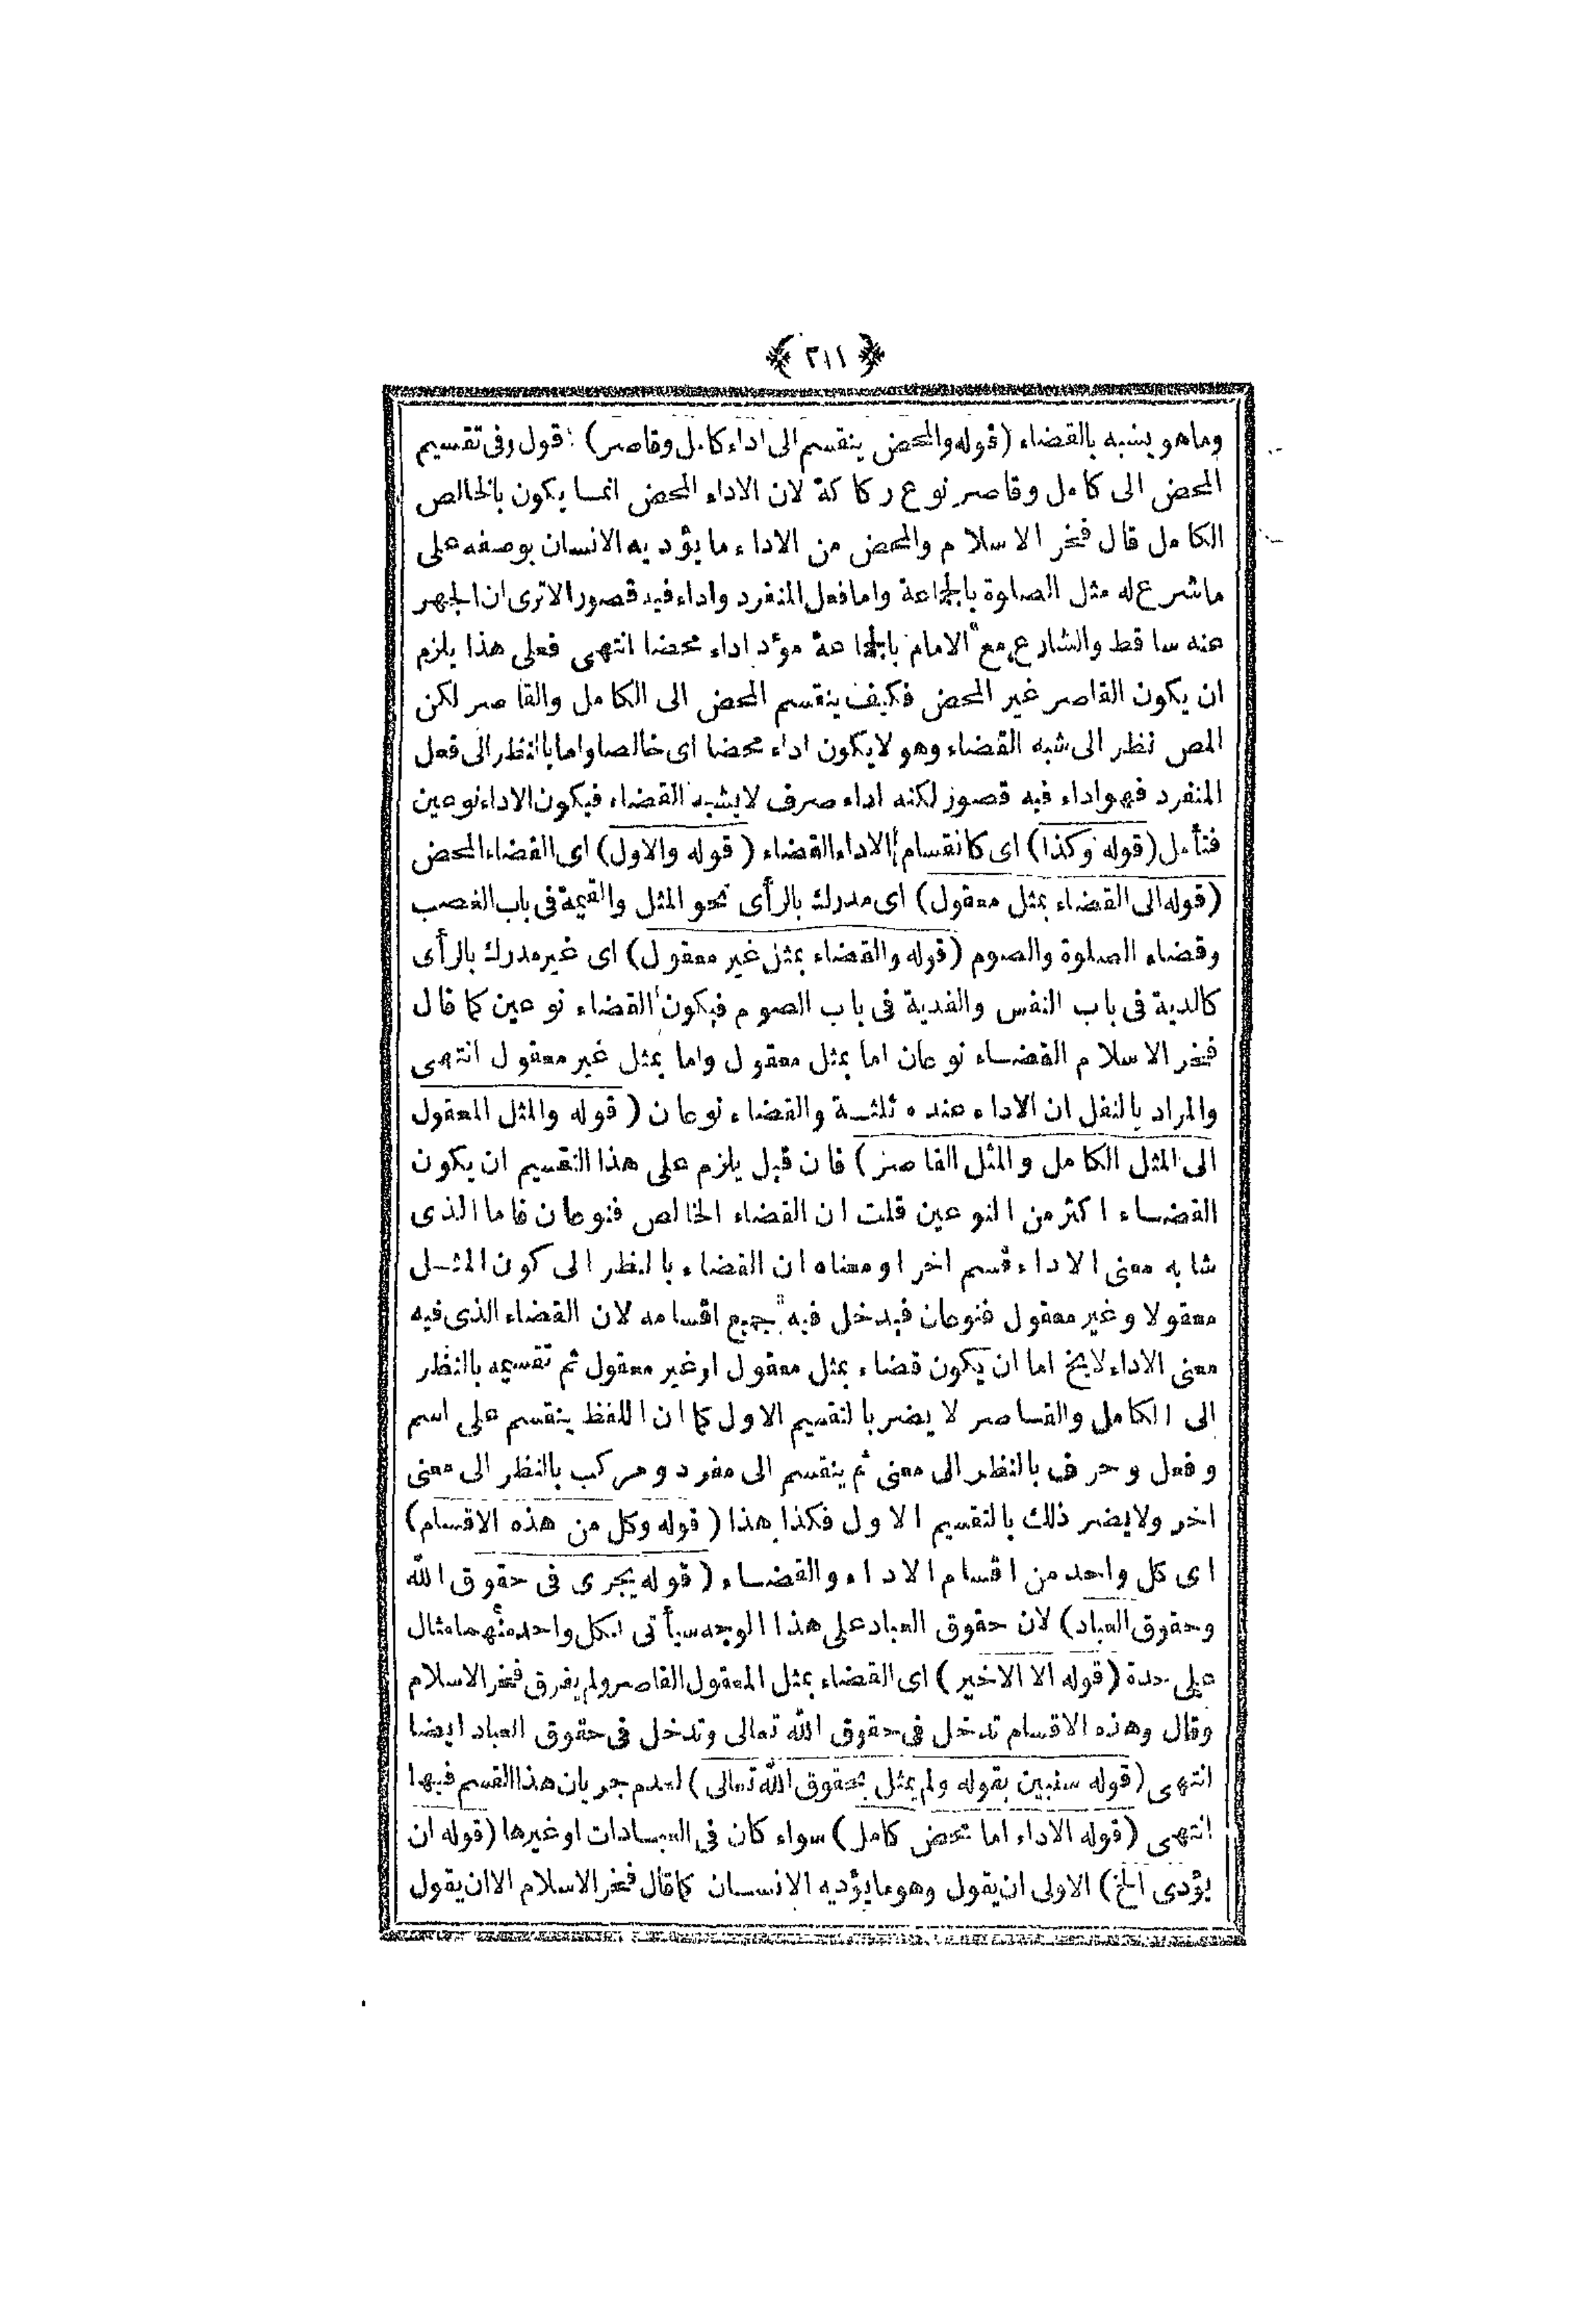 ﴿ ٢١١ ﴾
وما هو يشبه بالقضاء (قوله والمحض ينقسم الى اداء كامل وقاصر) اقول وفى تقسيم
المحض الى كامل وقاصر نوع ركاكة لان الاداء المحض انما يكون بالخالص
الكامل قال فخر الاسلام والمحض من الاداء ما يؤديه الانسان بوصفه على
ما شرع له مثل الصلوة بالجماعة واما فعل المنفرد واداء فيه قصور الاترى ان الجهر
عنه ساقط والشارع مع الامام بالجماعة مؤد اداء محضا انتهى فعلى هذا يلزم
ان يكون القاصر غير المحض فكيف ينقسم المحض الى الكامل والقاصر لكن
المص نظر الى شبه القضاء وهو لا يكون اداء محضا اى خالصا واما بالنظر الى فعل
المنفرد فهو اداء فيه قصور لكنه اداء صرف لا يشبه القضاء فيكون الاداء نوعين
فتأمل (قوله وكذا) اى كانقسام الاداء القضاء (قوله والاول) اى القضاء المحض
(قوله الى القضاء بمثل معقول) اى مدرك بالرأى نحو المثل والقيمة فى باب الغصب
وقضاء الصلوة والصوم (قوله والقضاء بمثل غير معقول) اى غير مدرك بالرأى
كالدية فى باب النفس والفدية فى باب الصوم فيكون القضاء نوعين كما قال
فخر الاسلام القضاء نوعان اما بمثل معقول واما بمثل غير معقول انتهى
والمراد بالنقل ان الاداء عنده ثلثة والقضاء نوعان (قوله والمثل المعقول
الى المثل الكامل والمثل القاصر) فان قيل يلزم على هذا التقسيم ان يكون
القضاء اكثر من النوعين قلت ان القضاء الخالص فنوعان فاما الذى
شابه معنى الاداء قسم اخر او معناه ان القضاء بالنظر الى كون المثل
معقولا وغير معقول فنوعان فيدخل فيه جميع اقسامه لان القضاء الذى فيه
معنى الاداء لا يخ اما ان يكون قضاء بمثل معقول او غير معقول ثم تقسيمه بالنظر
الى الكامل والقاصر لا يضر بالتقسيم الاول كما ان اللفظ ينقسم على اسم
وفعل وحرف بالنظر الى معنى ثم ينقسم الى مفرد ومركب بالنظر الى معنى
اخر ولا يضر ذلك بالتقسيم الاول فكذا هذا (قوله وكل من هذه الاقسام)
اى كل واحد من اقسام الاداء والقضاء (قوله يجرى فى حقوق الله
وحقوق العباد) لان حقوق العباد على هذا الوجه سيأتى لكل واحد منهما مثال
على حدة (قوله الا الاخير) اى القضاء بمثل المعقول القاصر ولم يفرق فخر الاسلام
وقال وهذه الاقسام تدخل فى حقوق الله تعالى وتدخل فى حقوق العباد ايضا
انتهى (قوله سنبين بقوله ولم يمثل بحقوق الله تعالى) لعدم جريان هذا القسم فيها
انتهى (قوله الاداء اما محض كامل) سواء كان فى العبادات او غيرها (قوله ان
يؤدى الخ) الاولى ان يقول وهو ما يؤديه الانسان كما قال فخر الاسلام الا ان يقول